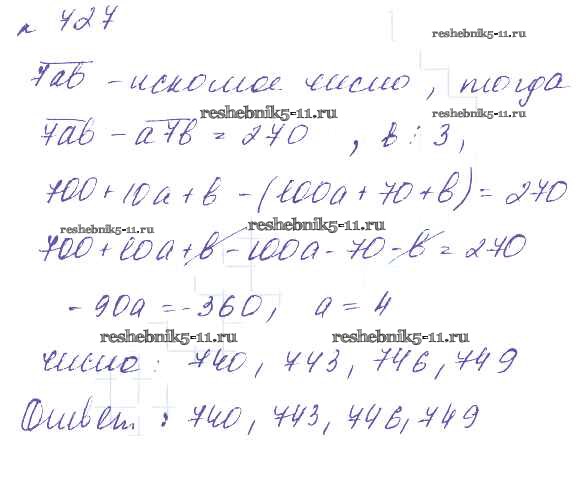 № 427
reshebnik5-11.ru
7ab - искомое число, тогда
reshebnik5-11.ru reshebnik5-11.ru
7ab - a7b = 270, b ⋮ 3,
700 + 10a + b - (100a + 70 + b) = 270
reshebnik5-11.ru reshebnik5-11.ru
700 + 10a + b - 100a - 70 - b = 270
- 90a = -360, a = 4
reshebnik5-11.ru reshebnik5-11.ru
число: 740, 743, 746, 749
Ответ: 740, 743, 746, 749